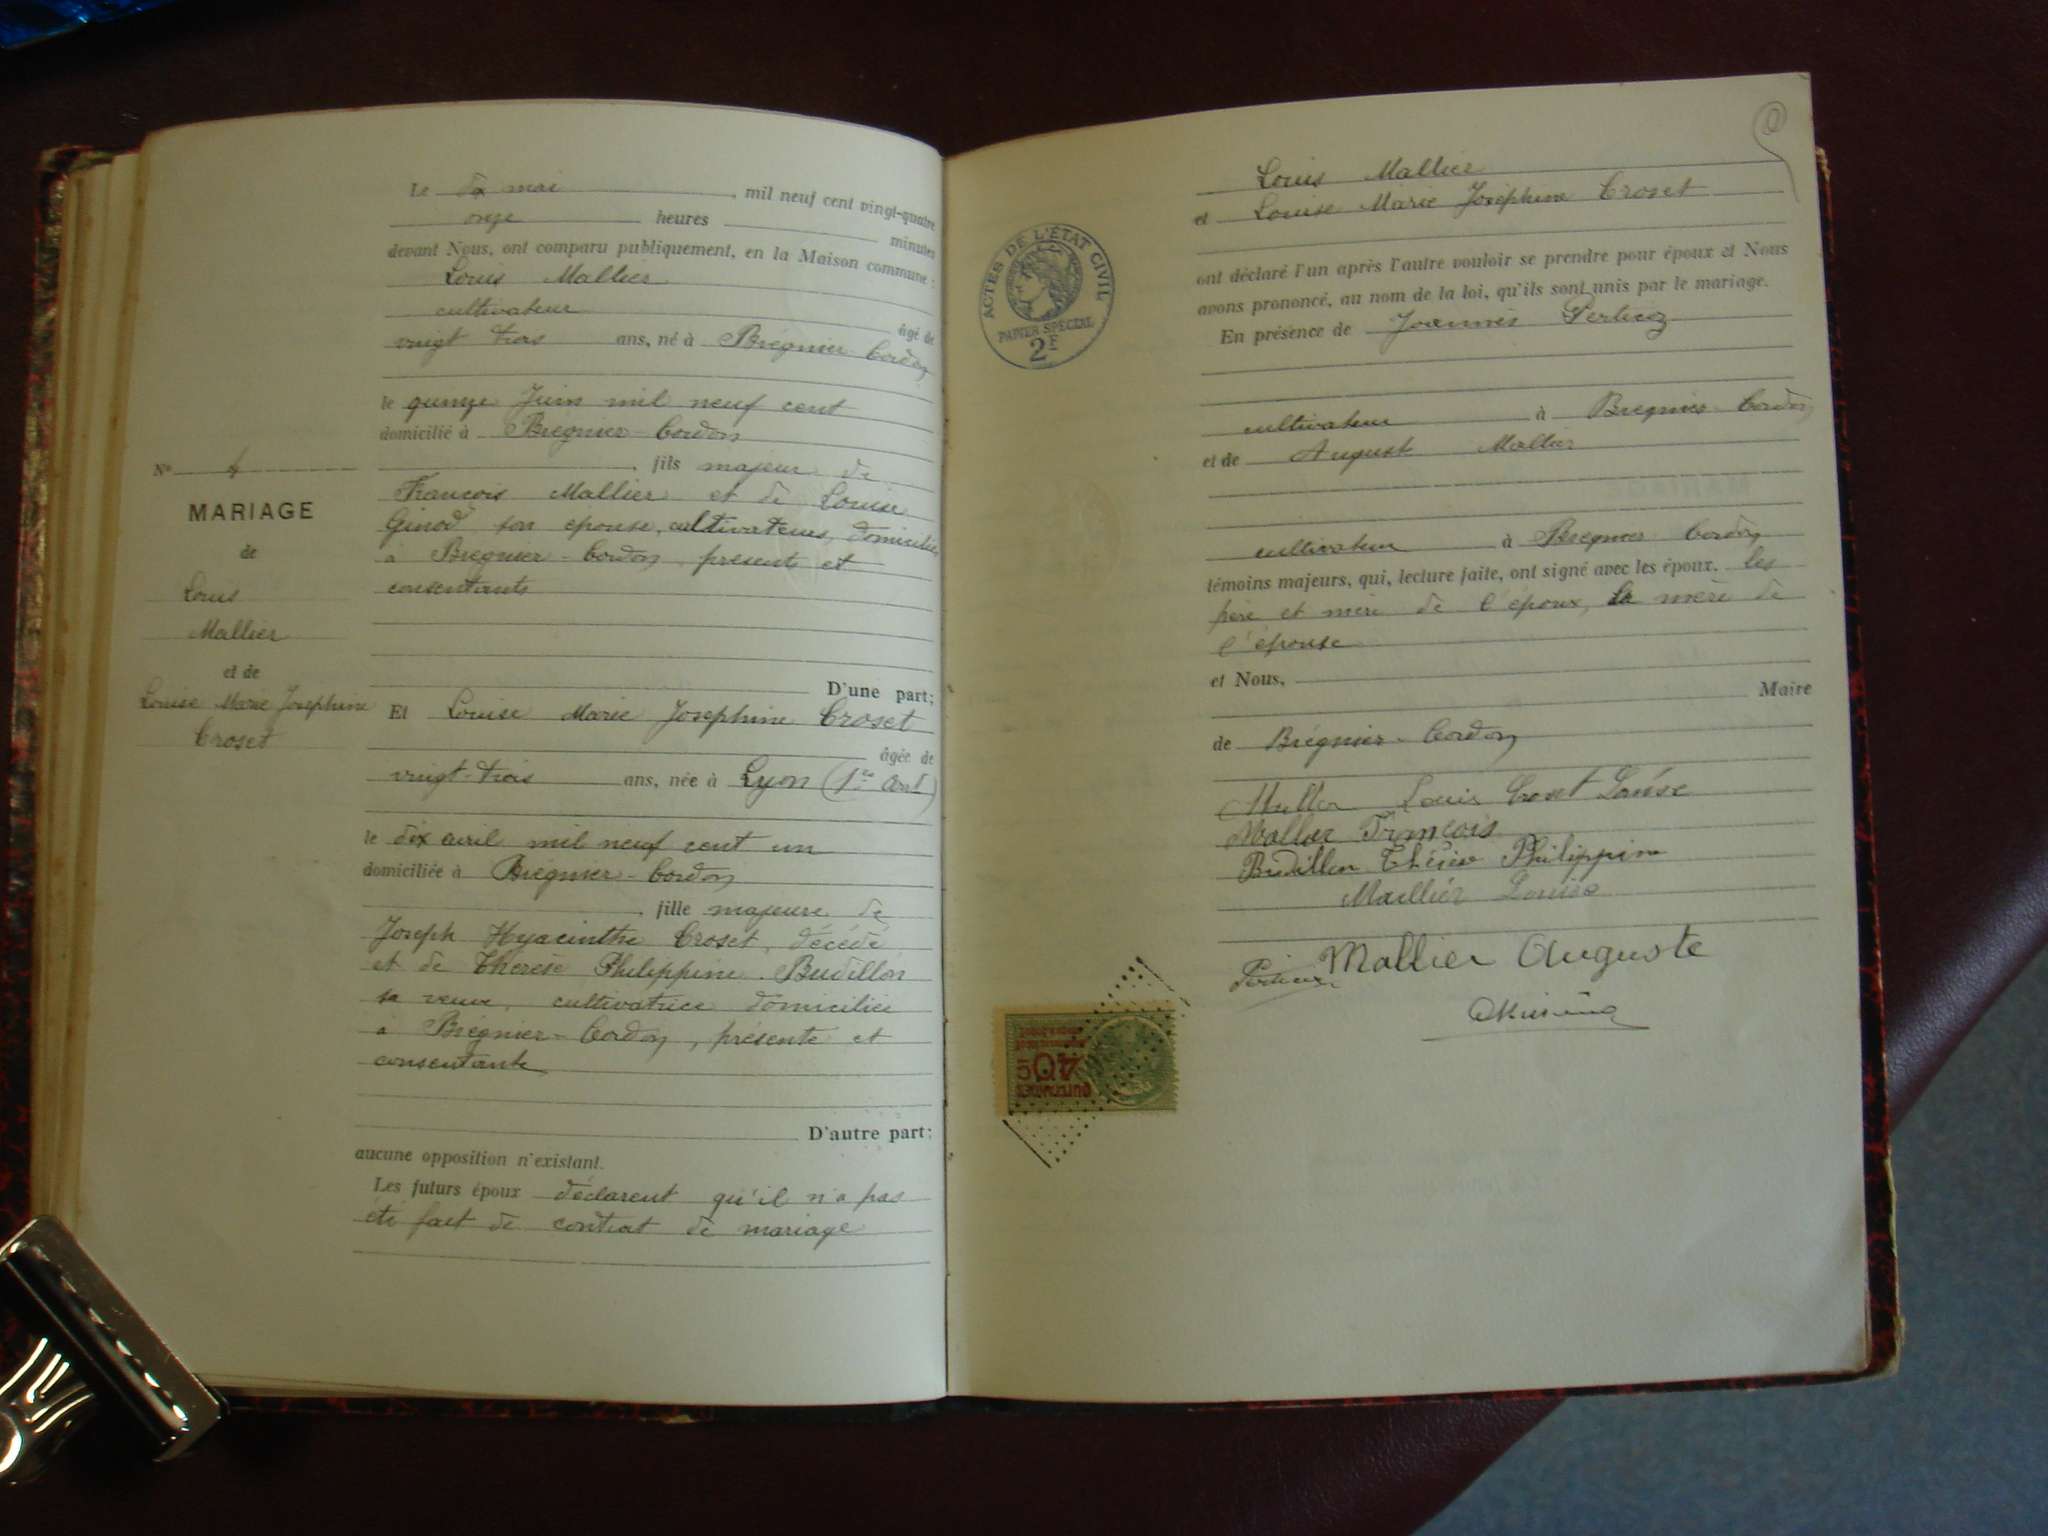 Le dix mai, mil neuf cent vingt-quatre
onze heures minutes
devant Nous, ont comparu publiquement, en la Maison commune :
Louis Mallier
cultivateur
âgé de
vingt trois ans, né à Brégnier-Cordon
le quinze Juin mil neuf cent
domicilié à Brégnier-Cordon
, fils majeur de
François Mallier et de Louise
Ginod son épouse, cultivateurs, domiciliés
à Brégnier-Cordon, présents et
consentants
D'une part;
Et Louise Marie Josephine Croset
âgée de
vingt-trois ans, née à Lyon (1er Arrt)
le dix avril mil neuf cent un
domiciliée à Brégnier-Cordon
, fille majeure de
Joseph Hyacinthe Croset, décédé
et de Thérèse Philippine Budillon
sa veuve, cultivatrice domiciliée
à Brégnier-Cordon, présente et
consentante
D'autre part;
aucune opposition n'existant.
Les futurs époux déclarent qu'il n'a pas
été fait de contrat de mariage
No 4
MARIAGE
de
Louis
Mallier
et de
Louise Marie Josephine
Croset
Louis Mallier
et Louise Marie Joséphine Croset
ont déclaré l'un après l'autre vouloir se prendre pour époux et Nous
avons prononcé, au nom de la loi, qu'ils sont unis par le mariage.
En présence de Joannès
cultivateur à Brégnier-Cordon
et de August Mallier
cultivateur à Brégnier-Cordon
témoins majeurs, qui, lecture faite, ont signé avec les époux, les
père et mère de l'époux, la mère de
l'épouse
et Nous,
Maire
de Brégnier-Cordon
Louis Croset Louise
François
Budillon Thérèse Philippine
Louise
Mallier Auguste
ACTES DE L'ÉTAT CIVIL
PAPIER SPÉCIAL
2F
40